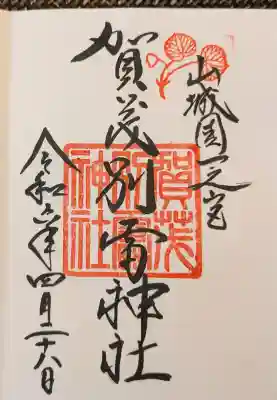 山城国一之宮
賀茂別雷神社
令和六年四月二十八日
賀茂別雷神社